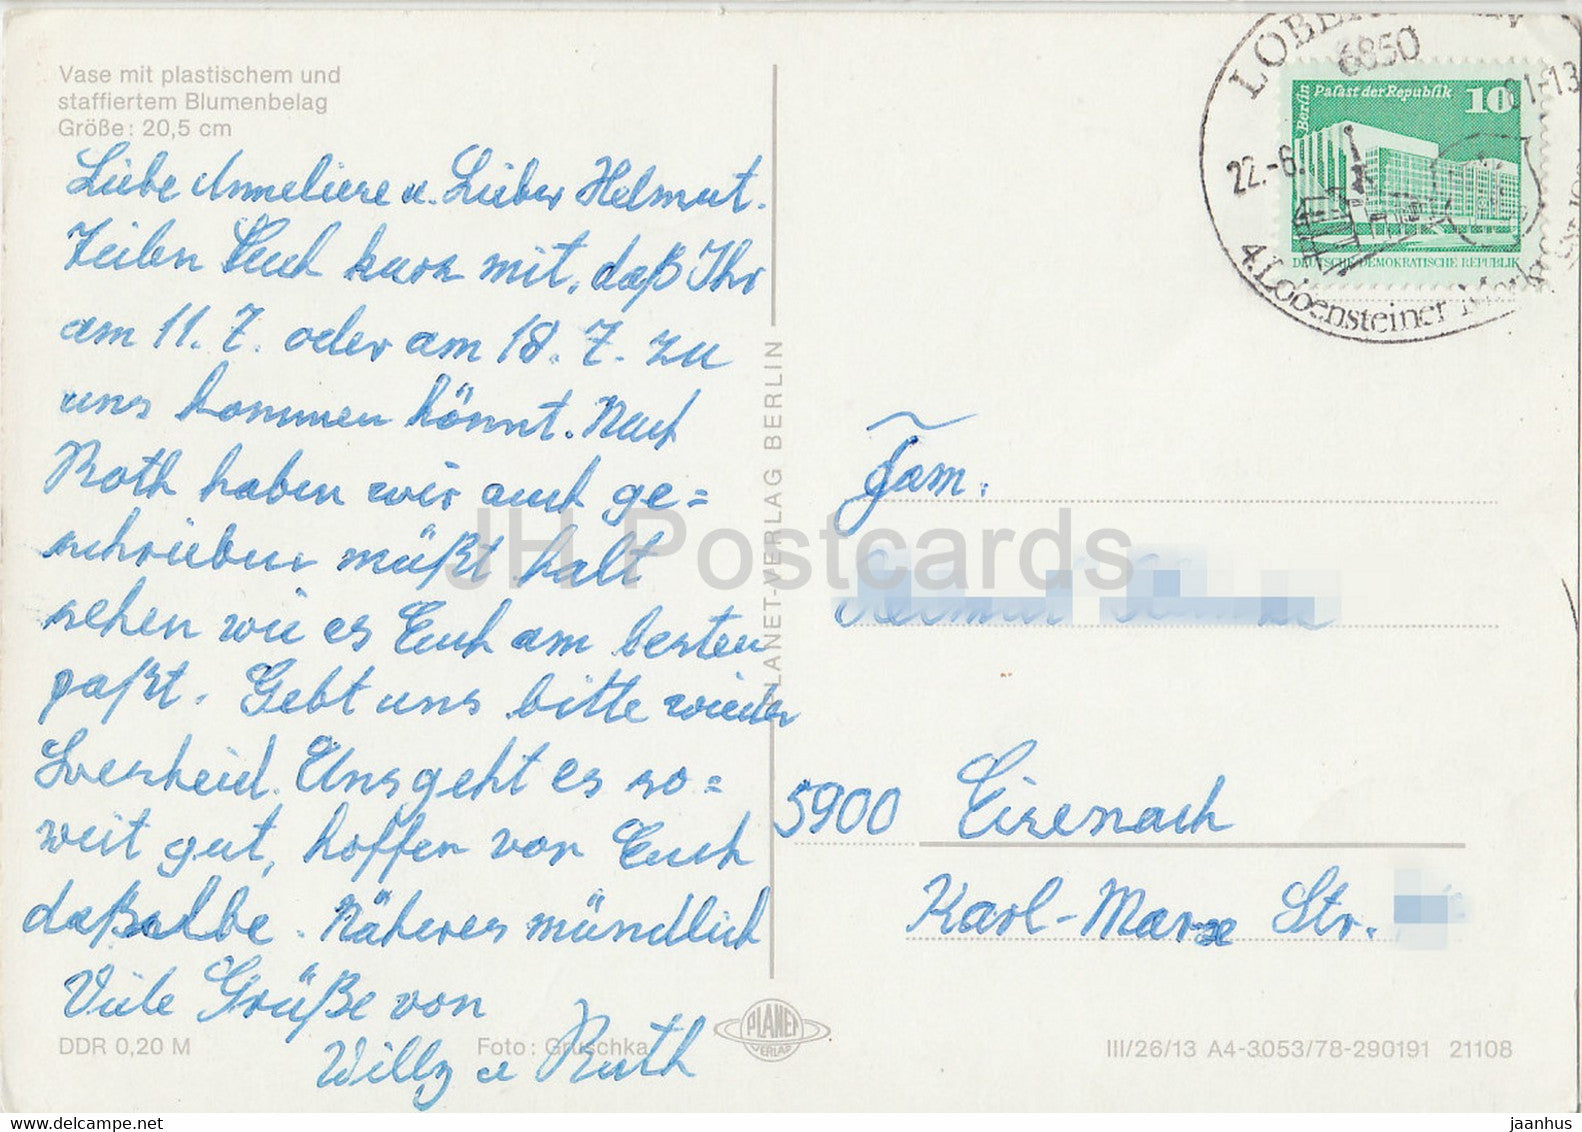 Vase mit plastischem und
staffiertem Blumenbelag
Größe: 20,5 cm
Liebe Anneliese u. Lieber Helmut.
Teilen Euch kurz mit, daß Ihr
am 11. 7. oder am 18. 7. zu
uns kommen könnt. Nach
Roth haben wir auch ge=
schrieben müßt halt
sehen wie es Euch am besten
paßt. Gebt uns bitte wieder
Bescheid. Uns geht es so=
weit gut, hoffen von Euch
daßselbe. Näheres mündlich
Viele Grüße von
Willy u Ruth
DDR 0,20 M
Foto: Gruschka
PLANET-VERLAG BERLIN
PLANET
VERLAG
6850
22.-6.
81-13
4. Lobensteiner
Berlin
Palast der Republik
10
DEUTSCHE DEMOKRATISCHE REPUBLIK
Fam.
5900 Eisenach
Karl-Marx Str.
III/26/13 A4-3053/78-290191 21108
JH Postcards
www.delcampe.net
jaanhus